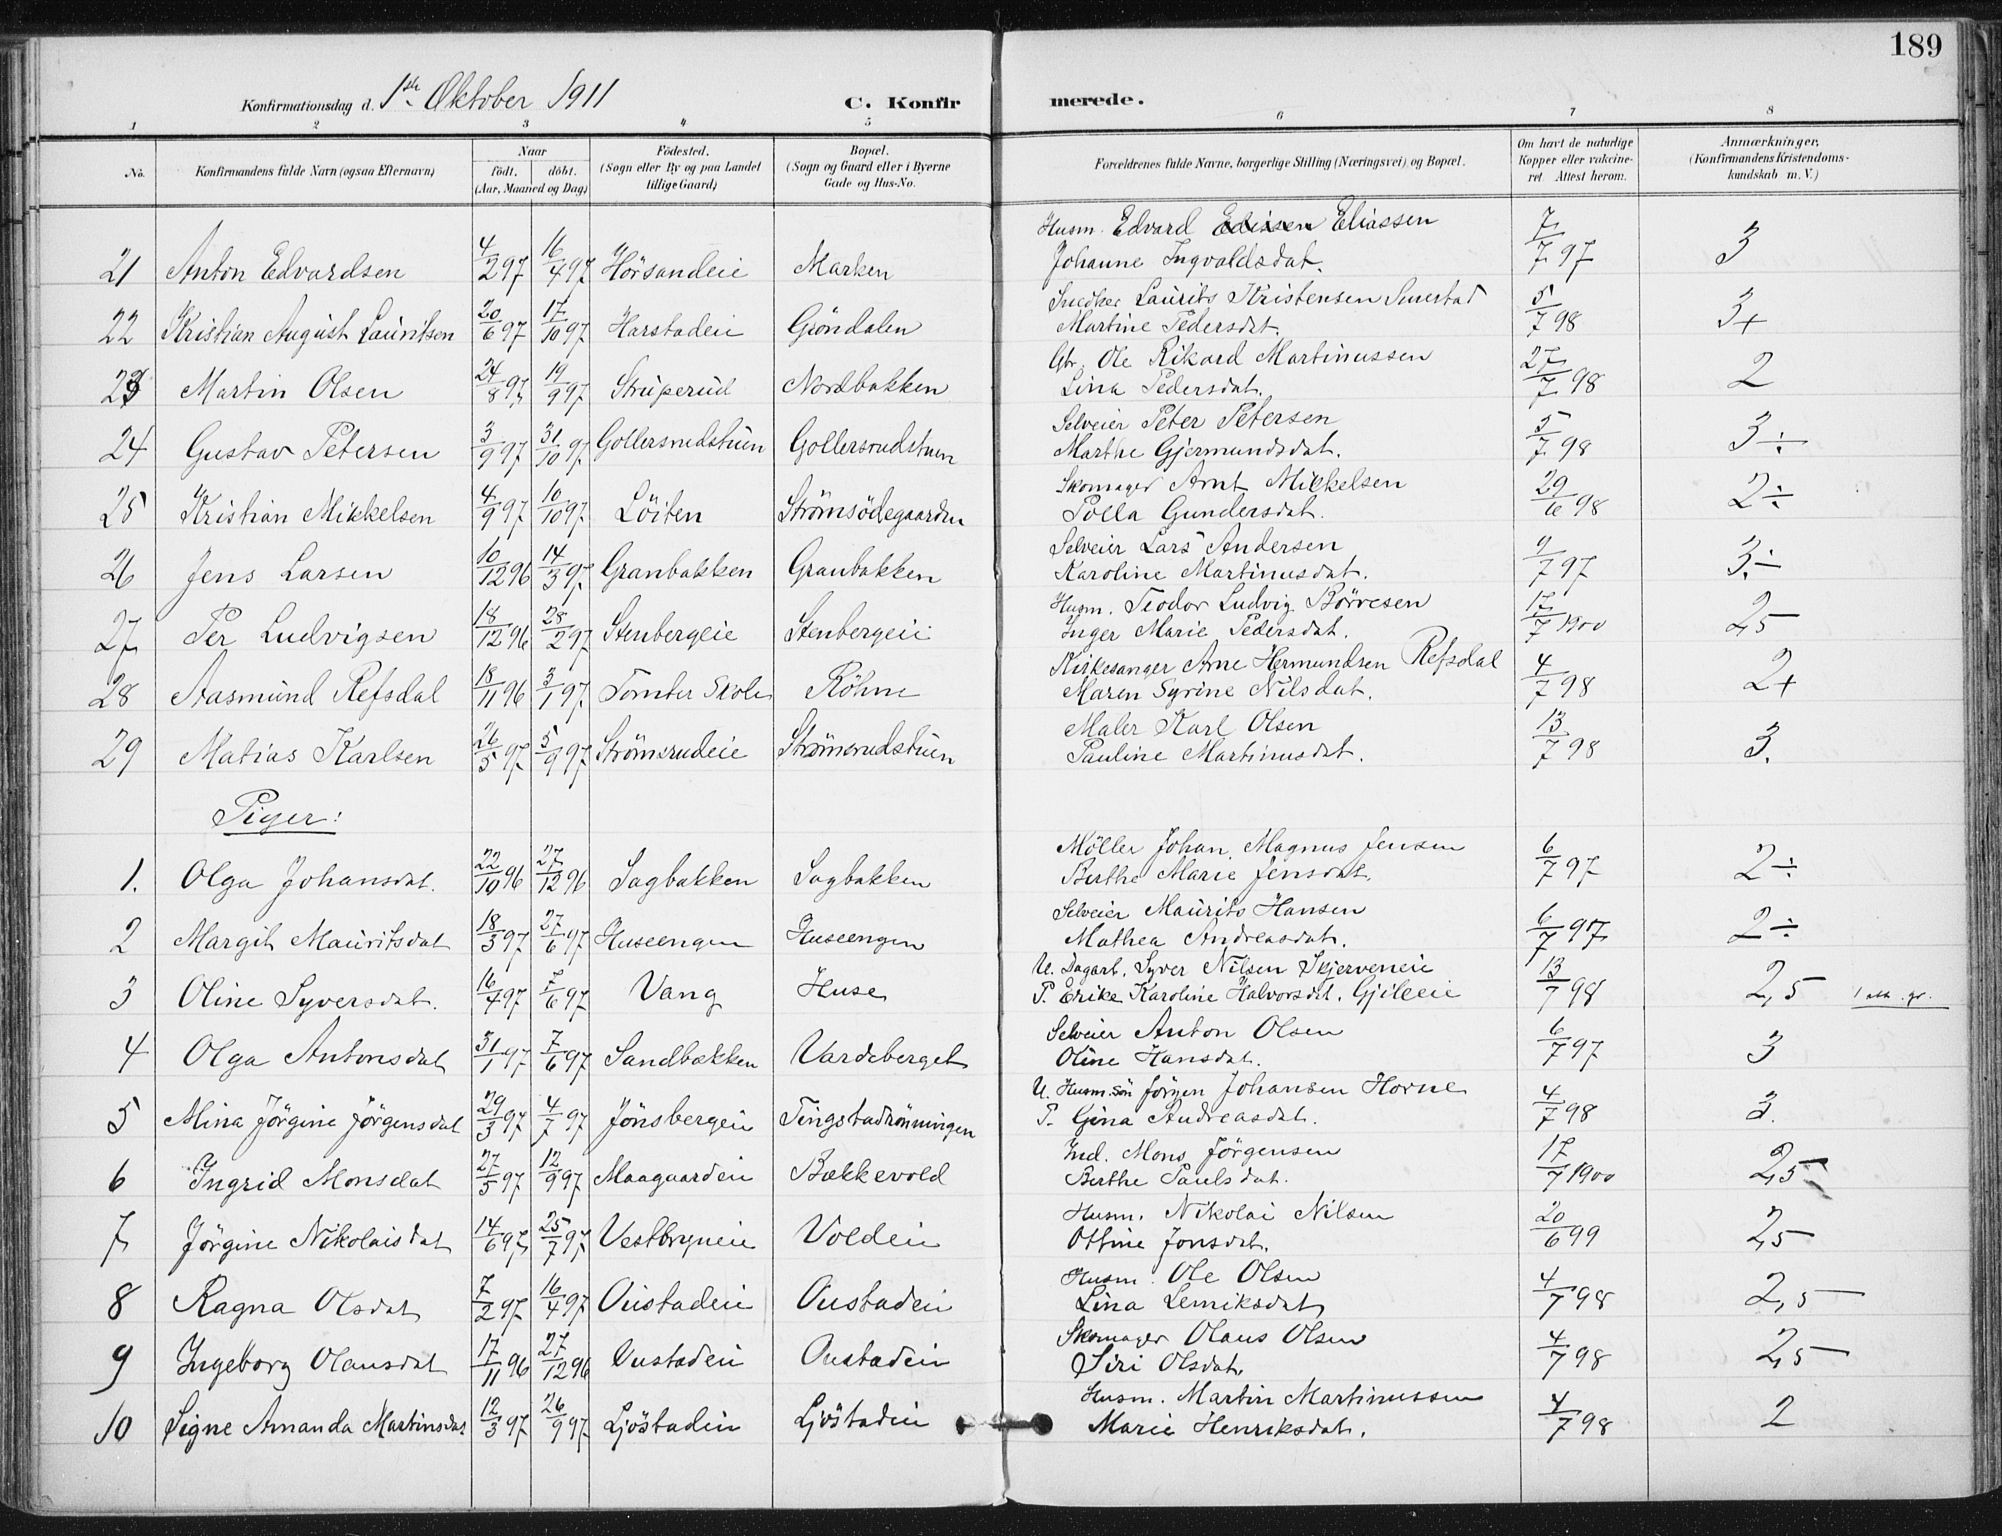 189
Konfirmationsdag d. 1ste Oktober 1911 C. Konfirmerede.
1 2 3 4 5 6 7 8
No. Konfirmandens fulde Navn (ogsaa Efternavn) Naar födt. döbt. (Aar, Maaned og Dag) Födested. (Sogn eller By og paa Landet tillige Gaard) Bopæl. (Sogn og Gaard eller i Byerne Gade og Hus-No. Forældrenes fulde Navne, borgerlige Stilling (Næringsvei) og Bopæl. Om havt de naturlige Kopper eller vakcineret Attest herom. Anmærkninger, (Konfirmandens Kristendomskundskab m. V.)
21 Anton Edvardsen 4/2 97 16/4 97 Hörsandeie Marken Husm. Edvard Eliassen 7/7 97 3
Johanne Ingvaldsdat.
22 Kristian August Lauritsen 20/6 97 17/10 97 Harstadeie Gröndalen Snedker Laurits Kristensen Smestad 5/7 98 3+
Martine Pedersdat.
23 Martin Olsen 24/8 97 19/9 97 Struperud Nordbakken Gbr. Ole Rikard Martinussen 27/7 98 2
Lina Pedersdat.
24 Gustav Petersen 3/9 97 31/10 97 Gollersrudstuen Gollersrudstuen Selveier Peter Petersen 5/7 98 3÷
Marthe Gjermundsdat.
25 Kristian Mikkelsen 4/9 97 10/10 97 Löiten Strömsödegaarden Skomager Arnt Mikkelsen 29/6 98 2÷
Polla Gundersdat.
26 Jens Larsen 10/12 96 14/3 97 Granbakken Granbakken Selveier Lars Andersen 9/7 97 3÷
Karoline Martinusdat.
27 Per Ludvigsen 18/12 96 28/2 97 Stenbergeie Stenbergeie Husm. Teodor Ludvig Börresen 17/7 1900 2,5
Inger Marie Pedersdat.
28 Aasmund Refsdal 18/11 96 3/1 97 Tomter Skole Röhne Kirkesanger Arne Hermundsen Refsdal 4/7 98 2+
Maren Syrine Nilsdat.
29 Matias Karlsen 26/5 97 5/9 97 Strömsrudeie Strömsrudstuen Maler Karl Olsen 13/7 98 3.
Pauline Martinusdat.
Piger:
1. Olga Johansdat. 22/10 96 27/12 96 Sagbakken Sagbakken Möller Johan Magnus Jensen 6/7 97 2÷
Berthe Marie Jensdat.
2 Margit Mauritsdat 18/3 97 27/6 97 Huseengen Huseengen Selveier Maurits Hansen 6/7 97 2÷
Mathea Andreasdat.
3 Oline Syversdat. 16/4 97 7/6 97 Vang Huse U. Dagarb. Syver Nilsen Skjerveneie 13/7 98 2,5
P. Erike Karoline Halvorsdat. Gjileeie
4 Olga Antonsdat 31/1 97 7/6 97 Sandbakken Vardeberget Selveier Anton Olsen 6/7 97 3
Oline Hansdat.
5 Mina Jörgine Jörgensdat 29/3 97 4/7 97 Jönsbergeie Tingstadrönningen U. Husm. sön Jörgen Johansen Horne 4/7 98 3.
P. Gina Andreasdat.
6 Ingrid Monsdat 27/5 97 12/9 97 Maagaardeie Bækkevold Ind. Mons Jörgensen 17/7 1900 2,5
Berthe Paulsdat.
7 Jörgine Nikolaisdat 14/6 97 25/7 97 Vestbyeneie Voldeie Husm. Nikolai Nilsen 20/6 99 2,5
Ottine Jonsdat.
8 Ragna Olsdat 7/2 97 16/4 97 Oustadeie Oustadeie Husm. Ole Olsen 4/7 98 2,5
Lina Lemiksdat
9 Ingeborg Olausdat 17/11 96 27/12 96 Oustadeie Oustadeie Skomager Olaus Olsen 4/7 98 2,5
Siri Olsdat.
10 Signe Amanda Martinsdat 12/3 97 26/9 97 Ljöstadeie Ljöstadeie Husm. Martin Martinussen 4/7 98 2
Marie Henriksdat.